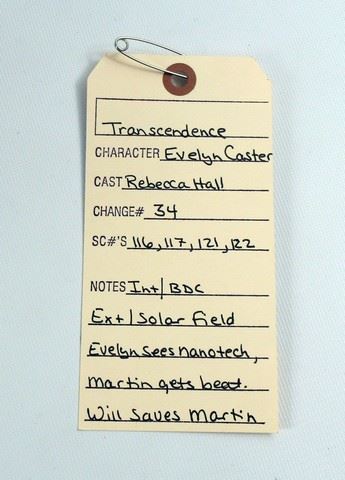 Transcendence
CHARACTER Evelyn Caster
CAST Rebecca Hall
CHANGE# 34
SC#'S 116, 117, 121, 122
NOTES Int/BDC
Ext/Solar Field
Evelyn sees nanotech,
Martin gets beat.
Will saves Martin